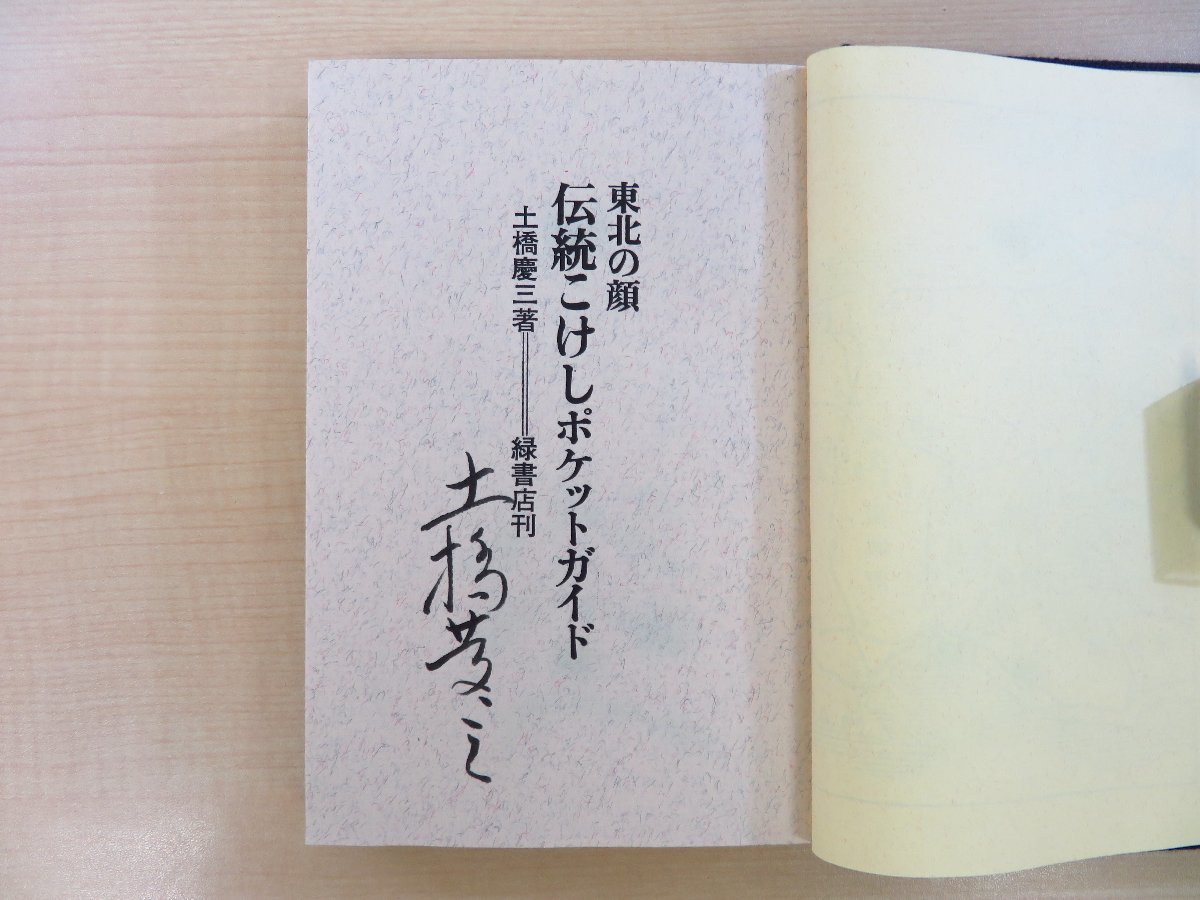 東北の顔
伝統こけしポケットガイド
土橋慶三著══緑書店刊
土橋慶三